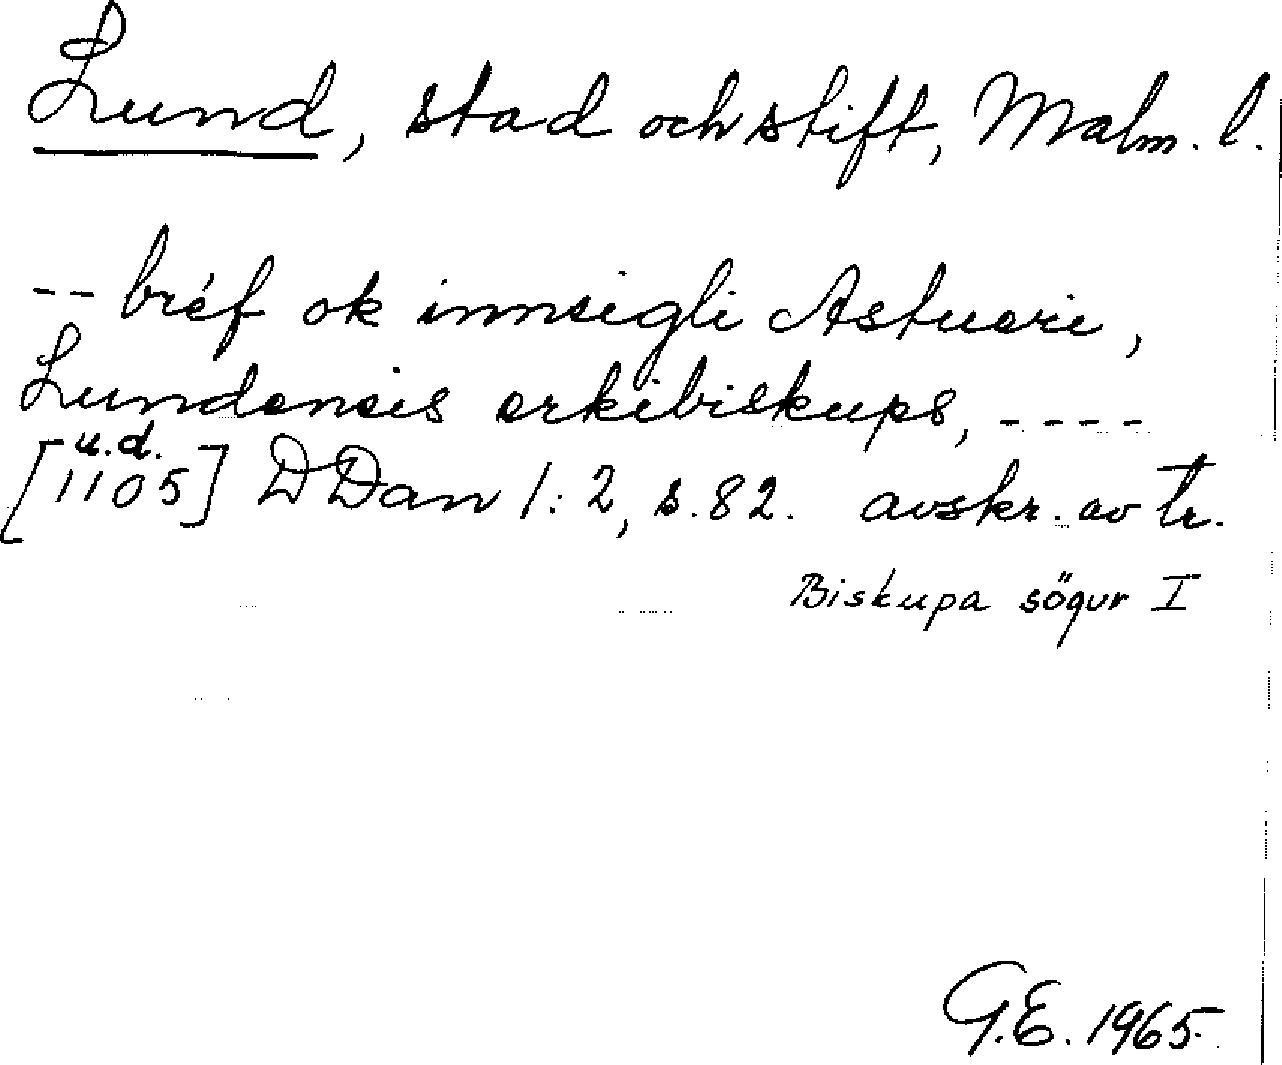 Lund, stad och stift, Malm. l.
-- bréf ok innsigli Astueri,
Lundensis erkibiskups, ----
u.d.
[1105] DDan 1:2, s.82. avskr. av tr.
Biskupa sögur I
G.E. 1965.